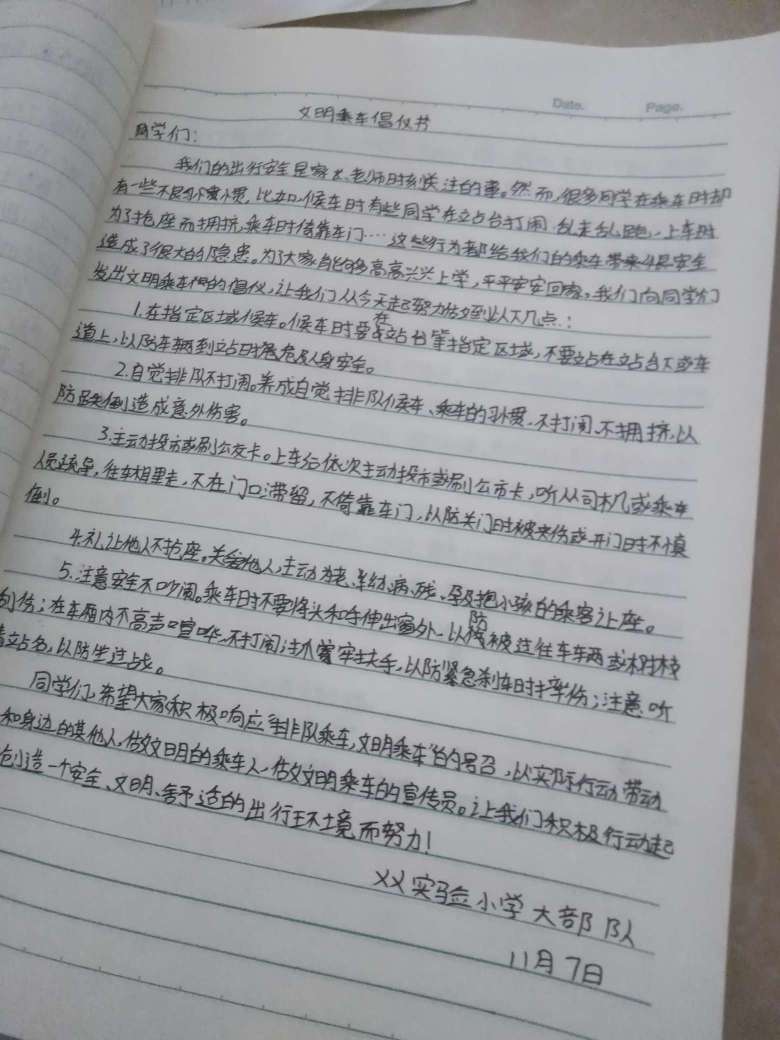 Date. Page.
文明乘车倡仪书
同学们:
我们的出行安全是家长、老师时刻关注的事。然而,很多同学在乘车时却
有一些不良小习惯,比如,候车时有些同学在站台打闹、乱走乱跑,上车时
为了抢座而拥挤,乘车时倚靠车门…这些行为都给我们的乘车带来安全
造成了很大的隐患。为了大家能够高高兴兴上学,平平安安回家,我们向同学们
发出文明乘车的倡仪,让我们从今天起努力做到以下几点:
1.在指定区域候车。候车时要在站台等指定区域,不要站在站台下或车
道上,以防车辆到站时危及人身安全。
2.自觉排队不打闹。养成自觉排队候车、乘车的习惯,不打闹、不拥挤,以
防跌倒造成意外伤害。
3.主动投市或刷公交卡。上车后依次主动投市或刷公市卡,听从司机或乘车
人员疏导,往车相里走,不在门口滞留,不倚靠车门,以防关门时被夹伤或开门时不慎
倒。
4.礼让他人不抢座。关爱他人,主动为老、幼、病、残、孕及抱小孩的乘客让座。
5.注意安全不吵闹。乘车时不要将头和手伸出窗外,以防被过往车车两或树枝
刮伤;在车厢内不高声喧哗,不打闹,抓牢扶手,以防紧急刹车时摔伤;注意听
清站名,以防坐过战。
同学们,希望大家积极响应“排队乘车,文明乘车”的号召,以实际行动带动
和身边的其他人,做文明的乘车人,做文明乘车的宣传员。让我们积极行动起
创造一个安全、文明、舒适的出行环境而努力!
XX实验小学大部队
11月7日